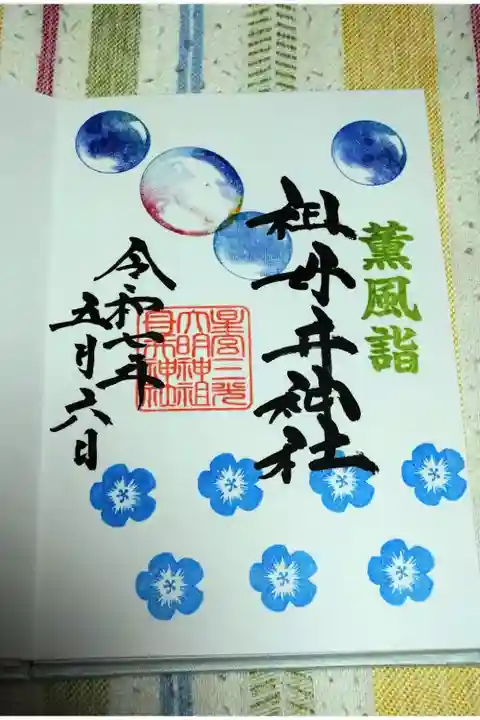 薫風詣
祖母井神社
星宮三光
大明神祖
母井神社
令和七年
五月六日